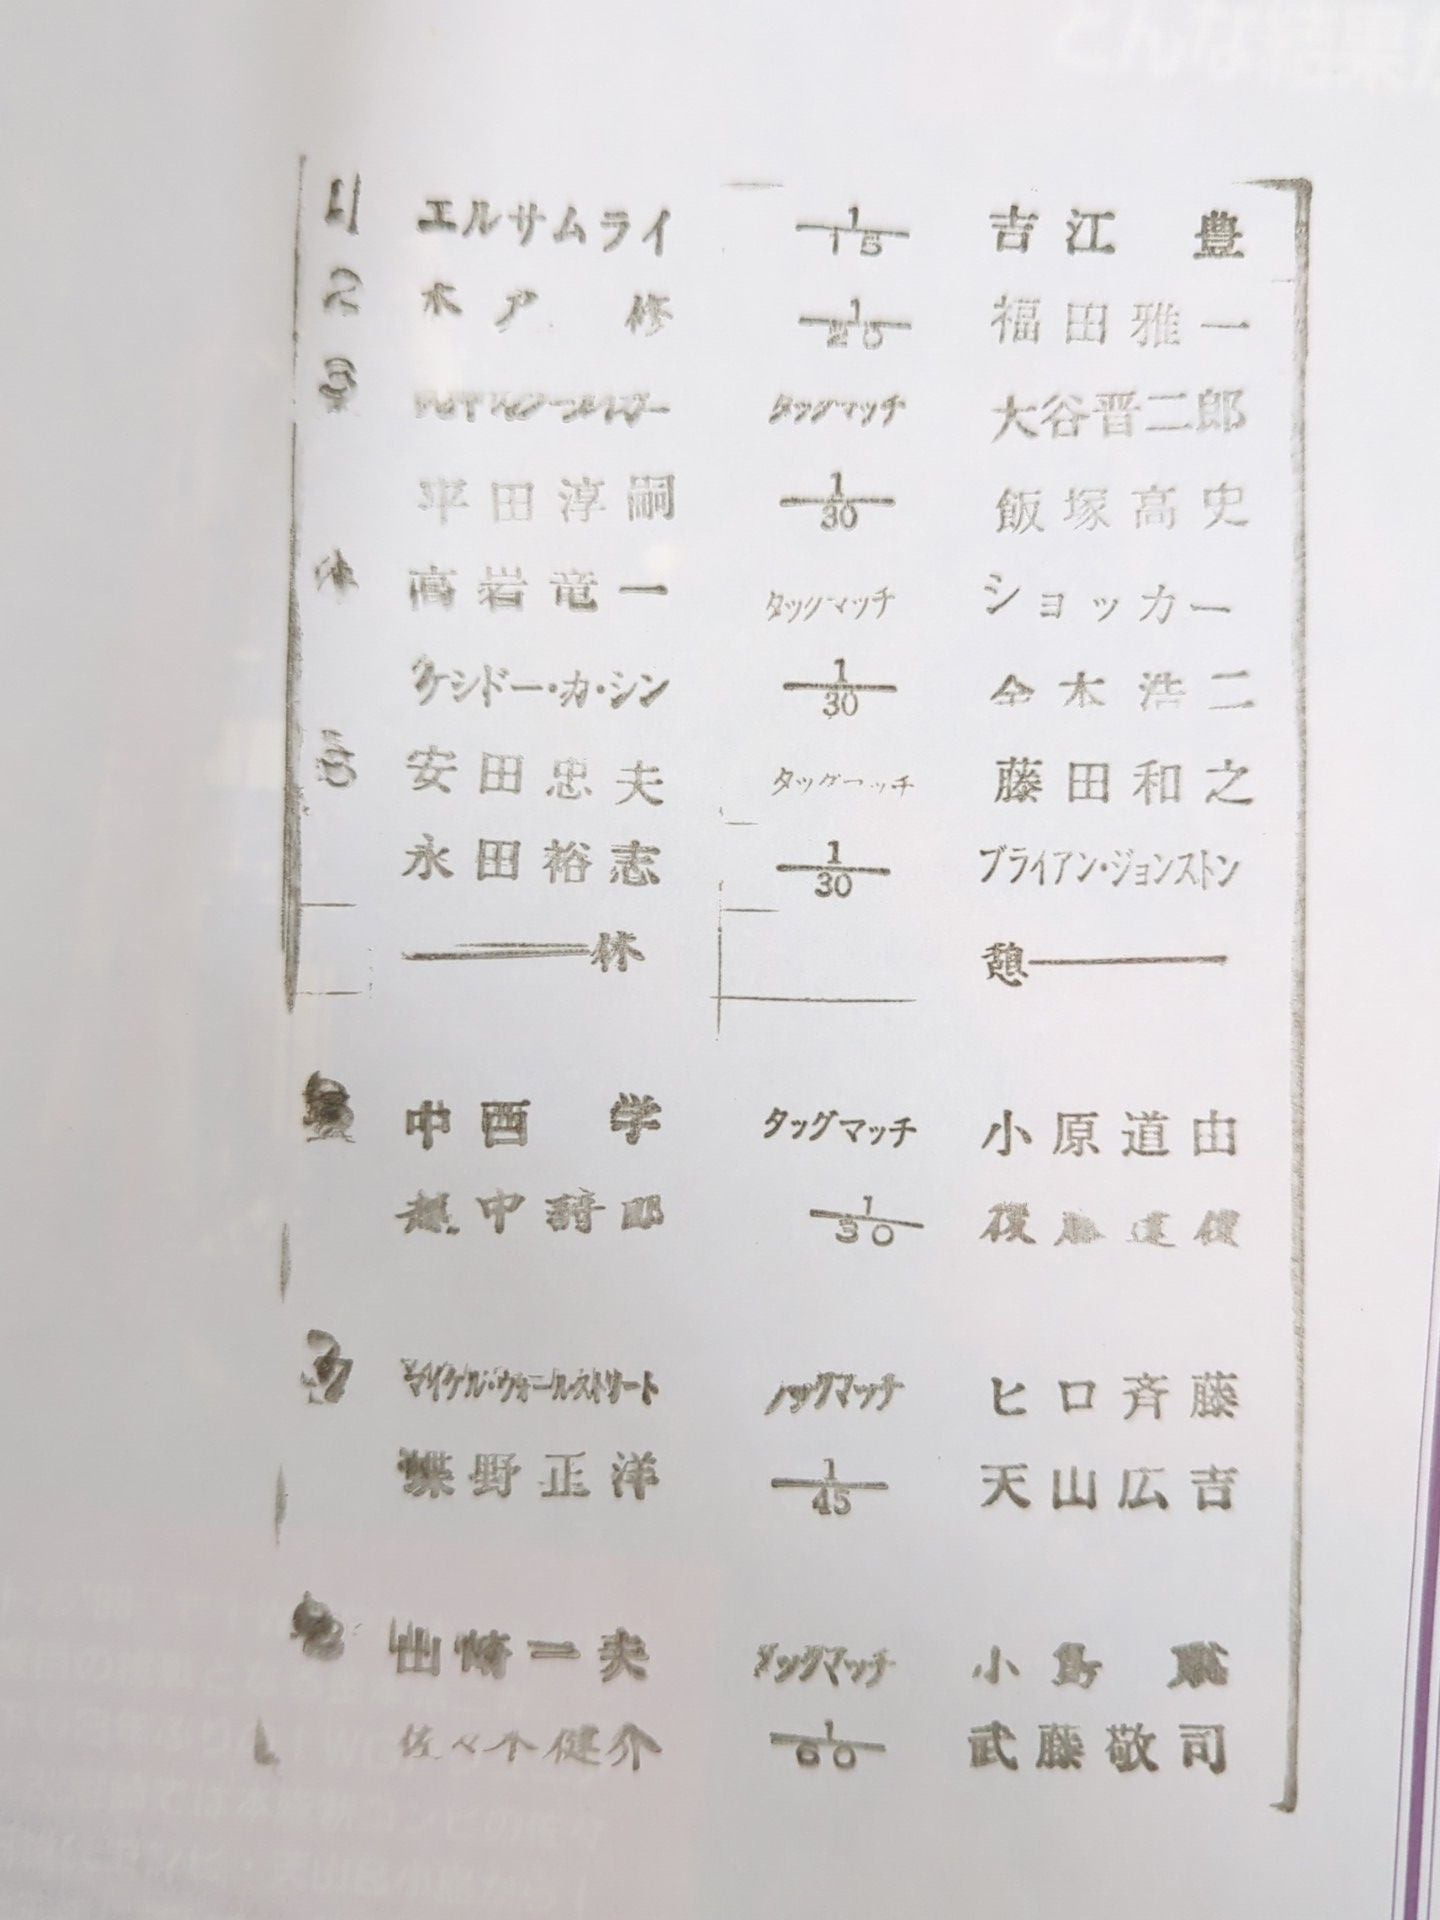 1 エルサムライ 1/15 吉江 豊
2 木戸 修 1/20 福田雅一
3 タッグマッチ 大谷晋二郎
平田淳嗣 1/30 飯塚高史
高岩竜一 タッグマッチ ショッカー
ケンドー・カ・シン 1/30 金本浩二
5 安田忠夫 タッグマッチ 藤田和之
永田裕志 1/30 ブライアン・ジョンストン
休 憩
中西 学 タッグマッチ 小原道由
越中詩郎 1/30 後藤達俊
マイケル・ウォールストリート タッグマッチ ヒロ斉藤
蝶野正洋 1/45 天山広吉
山崎一夫 タッグマッチ 小島 聡
佐々木健介 1/60 武藤敬司